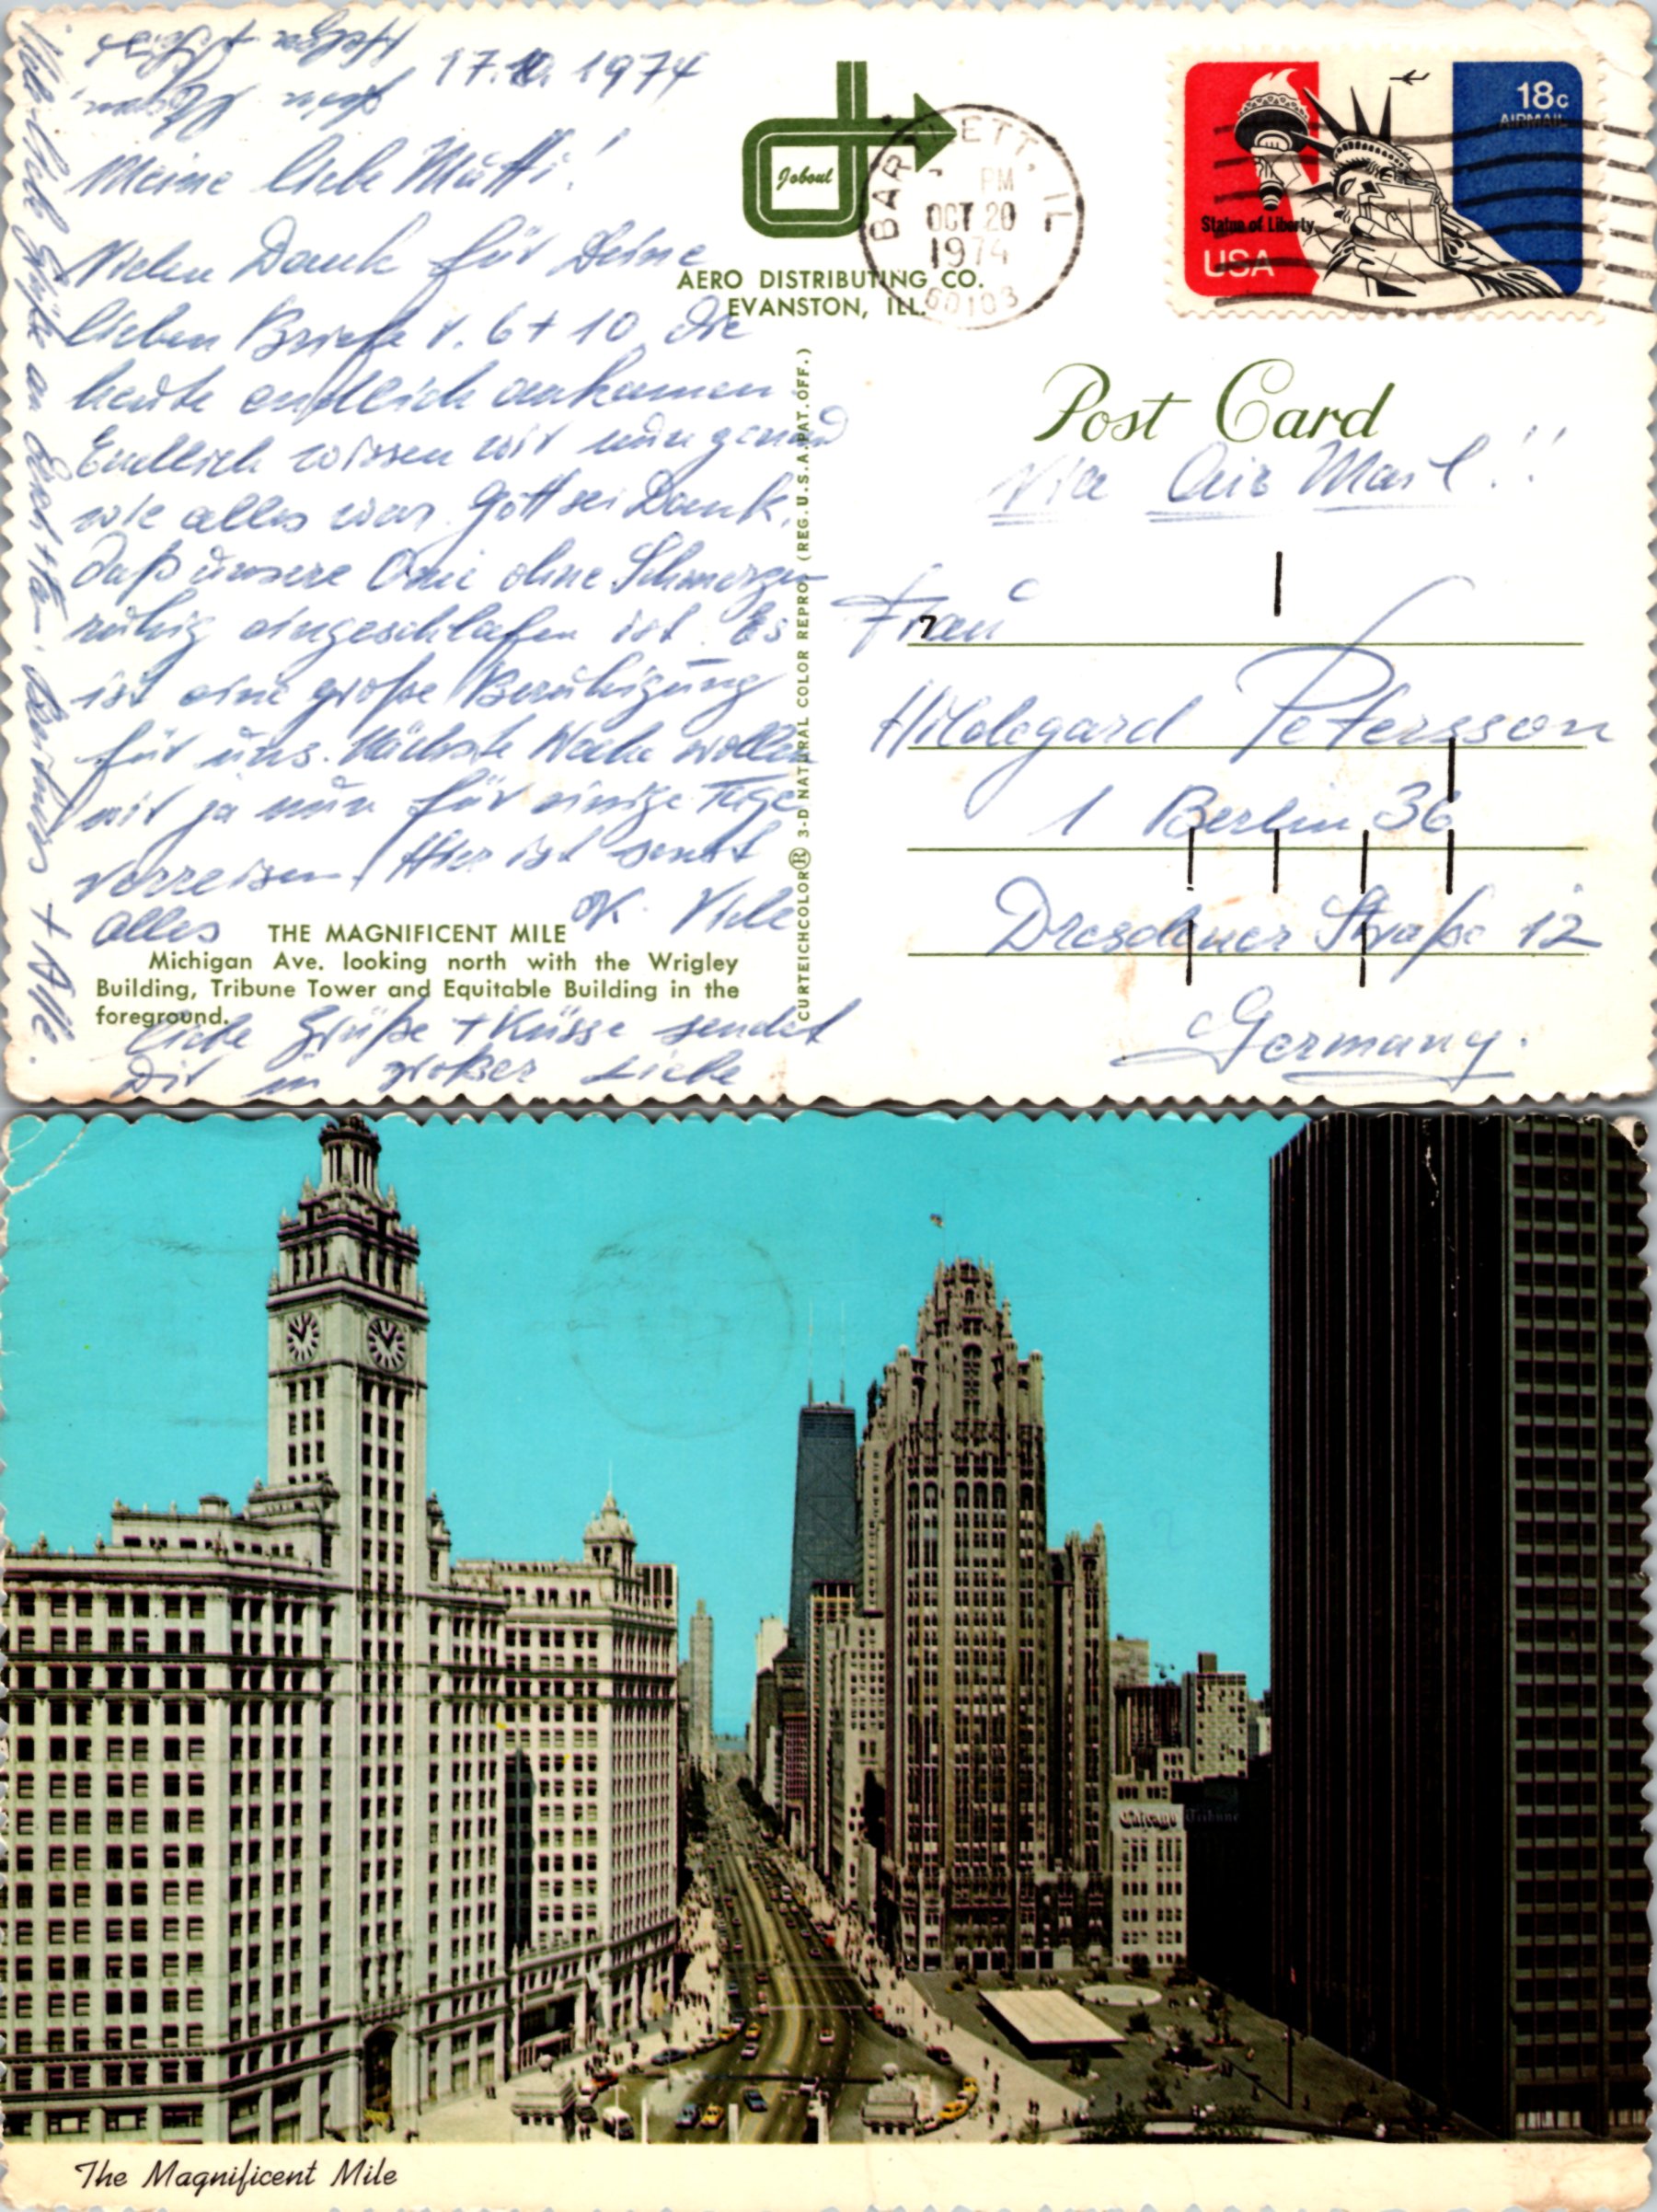 17.10.1974
Meine liebe Mutti!
Vielen Dank für Deine
lieben Briefe v. 6 + 10 die
heute endlich ankamen.
Endlich wissen wir nun genau
wie alles war. Gott sei Dank,
daß unsere Omi ohne Schmerzen
ruhig eingeschlafen ist. Es
ist eine große Beruhigung
für uns. Nächste Woche wollen
wir ja nun für einige Tage
verreisen. Hier ist sonst
alles OK. Viele
liebe Grüße + Küsse sendet
Dir in großer Liebe
Viele liebe Grüße an
+ Alle.
Joboul
AERO DISTRIBUTING CO.
EVANSTON, ILL.
BARTLETT, IL
PM
OCT 20
1974
60103
18c
AIRMAIL
Statue of Liberty
USA
Post Card
Via Air Mail!!
Frau
7
Hildegard Petersson
1 Berlin 36
Dresdener Straße 12
Germany.
CURTEICHCOLOR® 3-D NATURAL COLOR REPRO. (REG. U.S.A. PAT. OFF.)
THE MAGNIFICENT MILE
Michigan Ave. looking north with the Wrigley
Building, Tribune Tower and Equitable Building in the
foreground.
Chicago Tribune
The Magnificent Mile